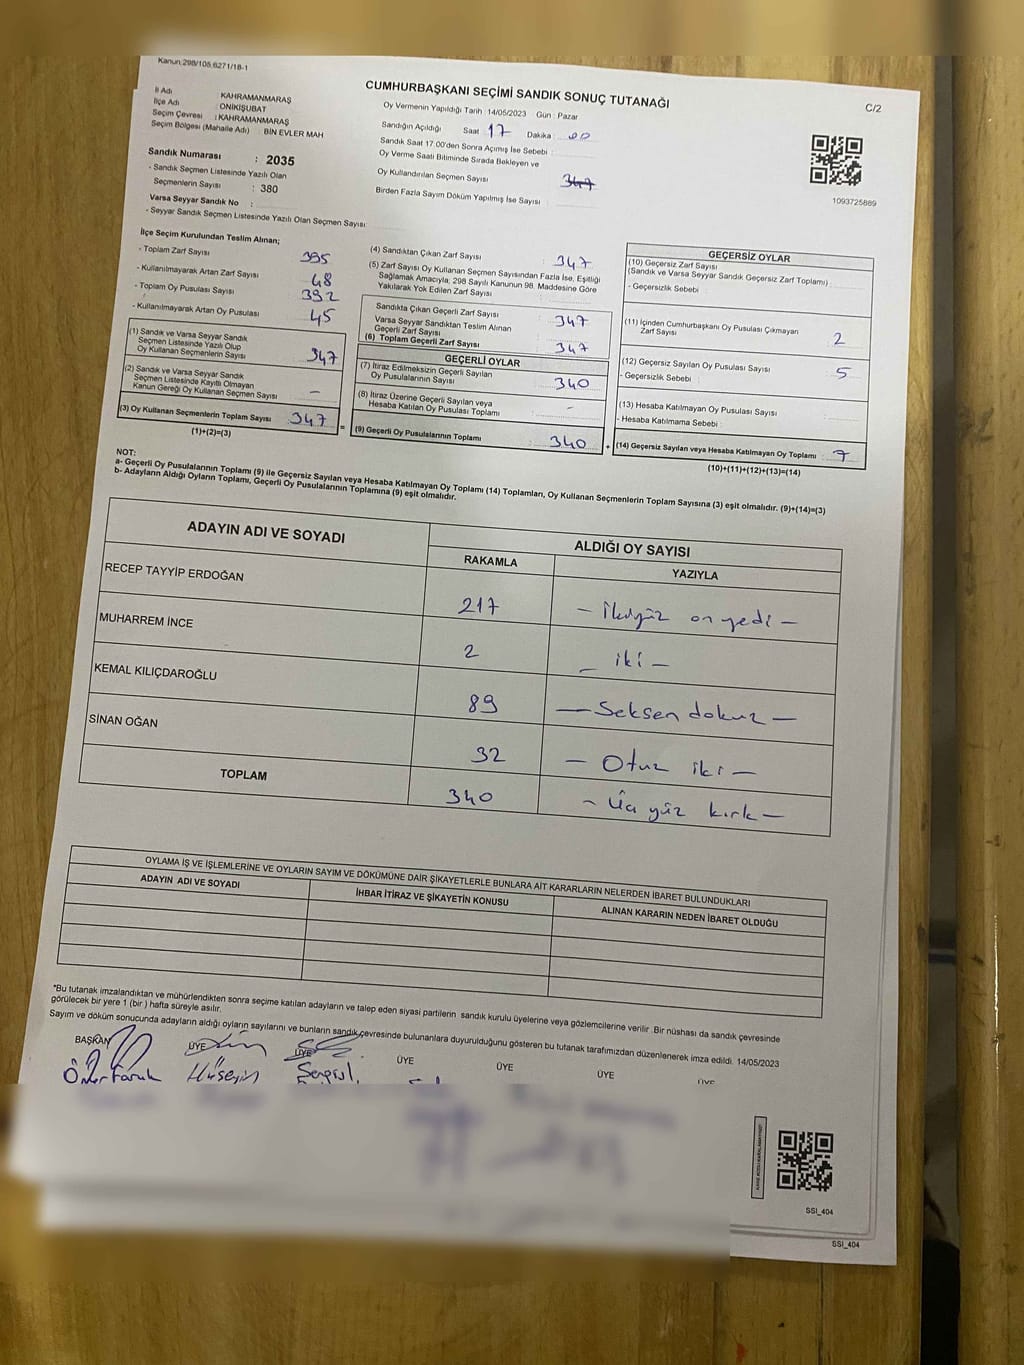 Kanun:298/105,6271/18-1
CUMHURBAŞKANI SEÇİMİ SANDIK SONUÇ TUTANAĞI
C/2
İl Adı : KAHRAMANMARAŞ
İlçe Adı : ONİKİŞUBAT
Seçim Çevresi : KAHRAMANMARAŞ
Seçim Bölgesi (Mahalle Adı) : BİN EVLER MAH
Oy Vermenin Yapıldığı Tarih : 14/05/2023 Gün : Pazar
Sandığın Açıldığı Saat 17 Dakika : 00
Sandık Saat 17:00'den Sonra Açımış İse Sebebi :
Oy Verme Saati Bitiminde Sırada Bekleyen ve
Oy Kullandırılan Seçmen Sayısı 347
Birden Fazla Sayım Döküm Yapılmış İse Sayısı :
1093725889
Sandık Numarası : 2035
- Sandık Seçmen Listesinde Yazılı Olan
Seçmenlerin Sayısı : 380
Varsa Seyyar Sandık No :
- Seyyar Sandık Seçmen Listesinde Yazılı Olan Seçmen Sayısı :
İlçe Seçim Kurulundan Teslim Alınan;
- Toplam Zarf Sayısı 395
- Kullanılmayarak Artan Zarf Sayısı 48
- Toplam Oy Pusulası Sayısı 392
- Kullanılmayarak Artan Oy Pusulası 45
(1) Sandık ve Varsa Seyyar Sandık
Seçmen Listesinde Yazılı Olup
Oy Kullanan Seçmenlerin Sayısı 347
(2) Sandık ve Varsa Seyyar Sandık
Seçmen Listesinde Kayıtlı Olmayan
Kanun Gereği Oy Kullanan Seçmen Sayısı -
(3) Oy Kullanan Seçmenlerin Toplam Sayısı 347
(1)+(2)=(3)
(4) Sandıktan Çıkan Zarf Sayısı : 347
(5) Zarf Sayısı Oy Kullanan Seçmen Sayısından Fazla İse, Eşitliği
Sağlamak Amacıyla; 298 Sayılı Kanunun 98. Maddesine Göre
Yakılarak Yok Edilen Zarf Sayısı :
Sandıkta Çıkan Geçerli Zarf Sayısı 347
Varsa Seyyar Sandıktan Teslim Alınan
Geçerli Zarf Sayısı
(6) Toplam Geçerli Zarf Sayısı 347
GEÇERLİ OYLAR
(7) İtiraz Edilmeksizin Geçerli Sayılan
Oy Pusulalarının Sayısı : 340
(8) İtiraz Üzerine Geçerli Sayılan veya
Hesaba Katılan Oy Pusulası Toplamı -
= (9) Geçerli Oy Pusulalarının Toplamı 340
GEÇERSİZ OYLAR
(10) Geçersiz Zarf Sayısı
(Sandık ve Varsa Seyyar Sandık Geçersiz Zarf Toplamı)
- Geçersizlik Sebebi :
(11) İçinden Cumhurbaşkanı Oy Pusulası Çıkmayan
Zarf Sayısı 2
(12) Geçersiz Sayılan Oy Pusulası Sayısı 5
- Geçersizlik Sebebi :
(13) Hesaba Katılmayan Oy Pusulası Sayısı
- Hesaba Katılmama Sebebi :
+ (14) Geçersiz Sayılan veya Hesaba Katılmayan Oy Toplamı : 7
(10)+(11)+(12)+(13)=(14)
NOT:
a- Geçerli Oy Pusulalarının Toplamı (9) ile Geçersiz Sayılan veya Hesaba Katılmayan Oy Toplamı (14) Toplamları, Oy Kullanan Seçmenlerin Toplam Sayısına (3) eşit olmalıdır. (9)+(14)=(3)
b- Adayların Aldığı Oyların Toplamı, Geçerli Oy Pusulalarının Toplamına (9) eşit olmalıdır.
ADAYIN ADI VE SOYADI
ALDIĞI OY SAYISI
RAKAMLA YAZIYLA
RECEP TAYYİP ERDOĞAN 217 - İkiyüz on yedi -
MUHARREM İNCE 2 - iki -
KEMAL KILIÇDAROĞLU 89 - Seksen dokuz -
SİNAN OĞAN 32 - Otuz iki -
TOPLAM 340 - Üç yüz kırk -
OYLAMA İŞ VE İŞLEMLERİNE VE OYLARIN SAYIM VE DÖKÜMÜNE DAİR ŞİKAYETLERLE BUNLARA AİT KARARLARIN NELERDEN İBARET BULUNDUKLARI
ADAYIN ADI VE SOYADI İHBAR İTİRAZ VE ŞİKAYETİN KONUSU ALINAN KARARIN NEDEN İBARET OLDUĞU
"Bu tutanak imzalandıktan ve mühürlendikten sonra seçime katılan adayların ve talep eden siyasi partilerin sandık kurulu üyelerine veya gözlemcilerine verilir. Bir nüshası da sandık çevresinde
görülecek bir yere 1 (bir ) hafta süreyle asılır.
Sayım ve döküm sonucunda adayların aldığı oyların sayılarını ve bunların sandık çevresinde bulunanlara duyurulduğunu gösteren bu tutanak tarafımızdan düzenlenerek imza edildi. 14/05/2023
BAŞKAN ÜYE ÜYE ÜYE ÜYE ÜYE ÜYE
Ömer Faruk Hüseyin Songül
SSI_404
SSI_404